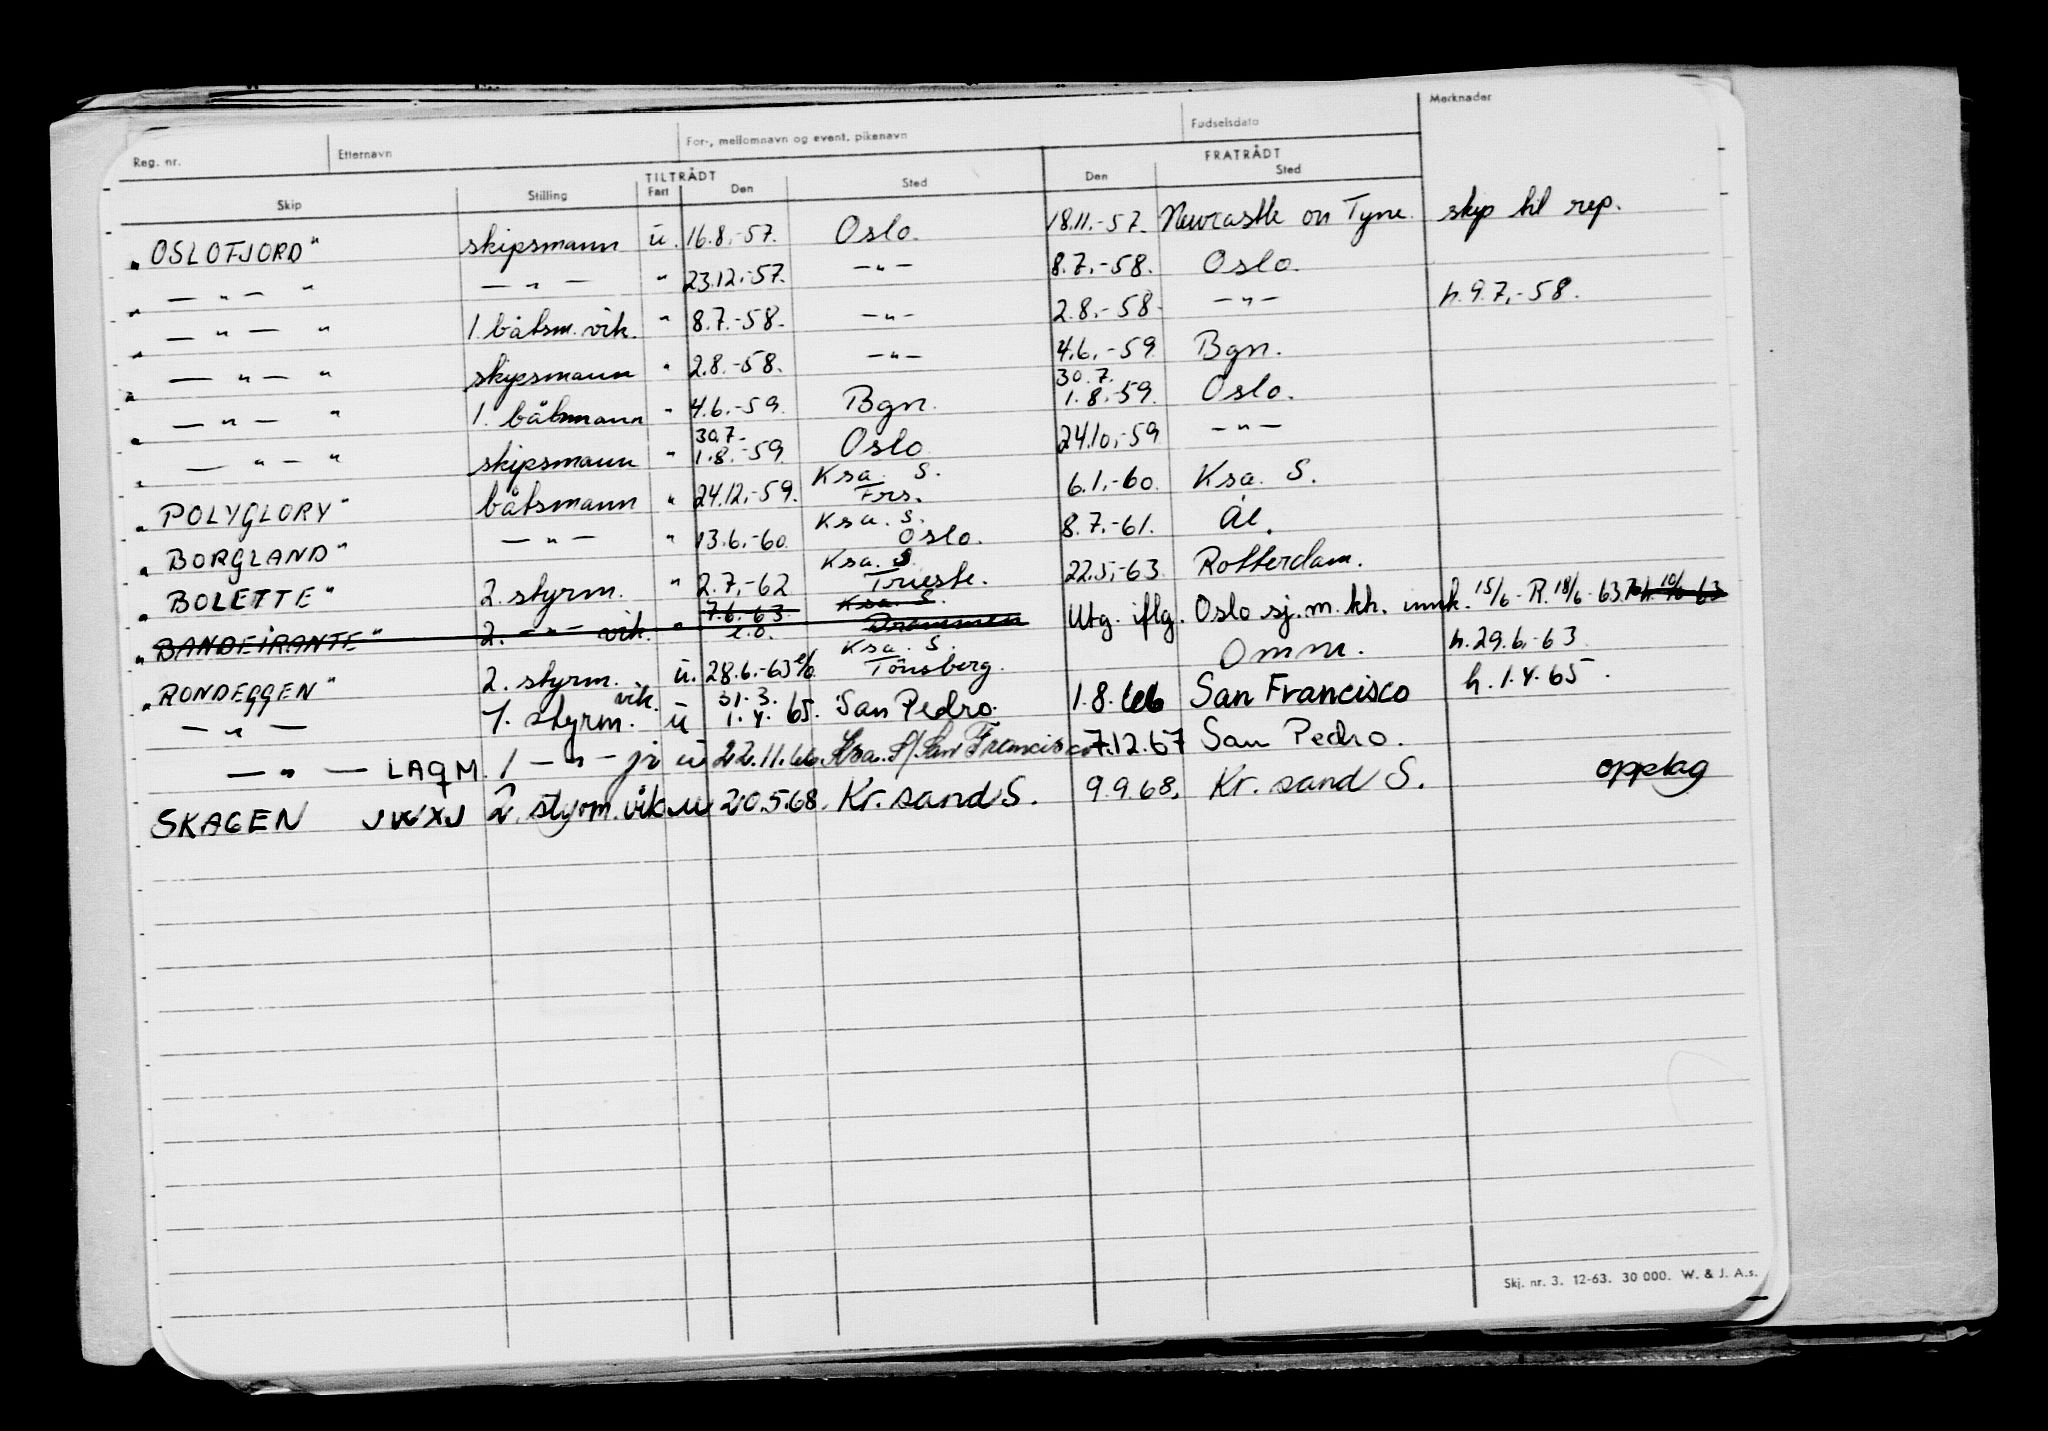 Reg. nr. Etternavn For-, mellomnavn og event. pikenavn Fødselsdato Merknader
TILTRÅDT FRATRÅDT
Skip Stilling Fart Den Sted Den Sted
"OSLOFJORD" skipsmann u. 16.8.-57. Oslo. 18.11.-57. Newcastle on Tyne. skip til rep.
" — " — " — " — " 23.12.-57. — " — 8.7.-58. Oslo.
" — " — " 1. båtsm. vik. " 8.7.-58. — " — 2.8.-58. — " — h. 9.7.-58.
" — " — " skipsmann " 2.8.-58. — " — 4.6.-59. Bgn.
" — " — " 1. båtsmann " 4.6.-59. Bgn. 30.7. 1.8.-59. Oslo.
" — " — " skipsmann " 30.7- 1.8.-59. Oslo 24.10.-59 — " —
"POLYGLORY" båtsmann " 24.12.-59. Ksa. S. Frs. 6.1.-60. Ksa. S.
"BORGLAND" — " — " 13.6.-60. Ksa. S. Oslo. 8.7.-61. Ål.
"BOLETTE" 2. styrm. " 2.7.-62 Ksa. S. Trieste. 22.5.-63. Rotterdam.
"BANDEIRANTE" 2. — " — vik. " 7.6.-63. e.o. Ksa. S. Drammen Utg. iflg. Oslo sj.m.kh. unnk. 15/6 - R. 18/6 - 63. h. 10/6-63
"RONDEGGEN" 2. styrm. u. 28.6.-63 e/o Ksa. S. Tönsberg. Omm. h. 29.6.-63
— " — 1. styrm. vik. u 31.3. 1.4.65. San Pedro. 1.8.66 San Francisco h. 1.4.65.
— " — LAQM. 1 — " — jr u 22.11.66. Ksa. S/. San Francisco 7.12.67 San Pedro.
SKAGEN JWXJ 2. styrm. vik u 20.5.68. Kr. sand S. 9.9.68. Kr. sand S. opplag
Skj. nr. 3. 12-63. 30 000. W. & J. A.s.